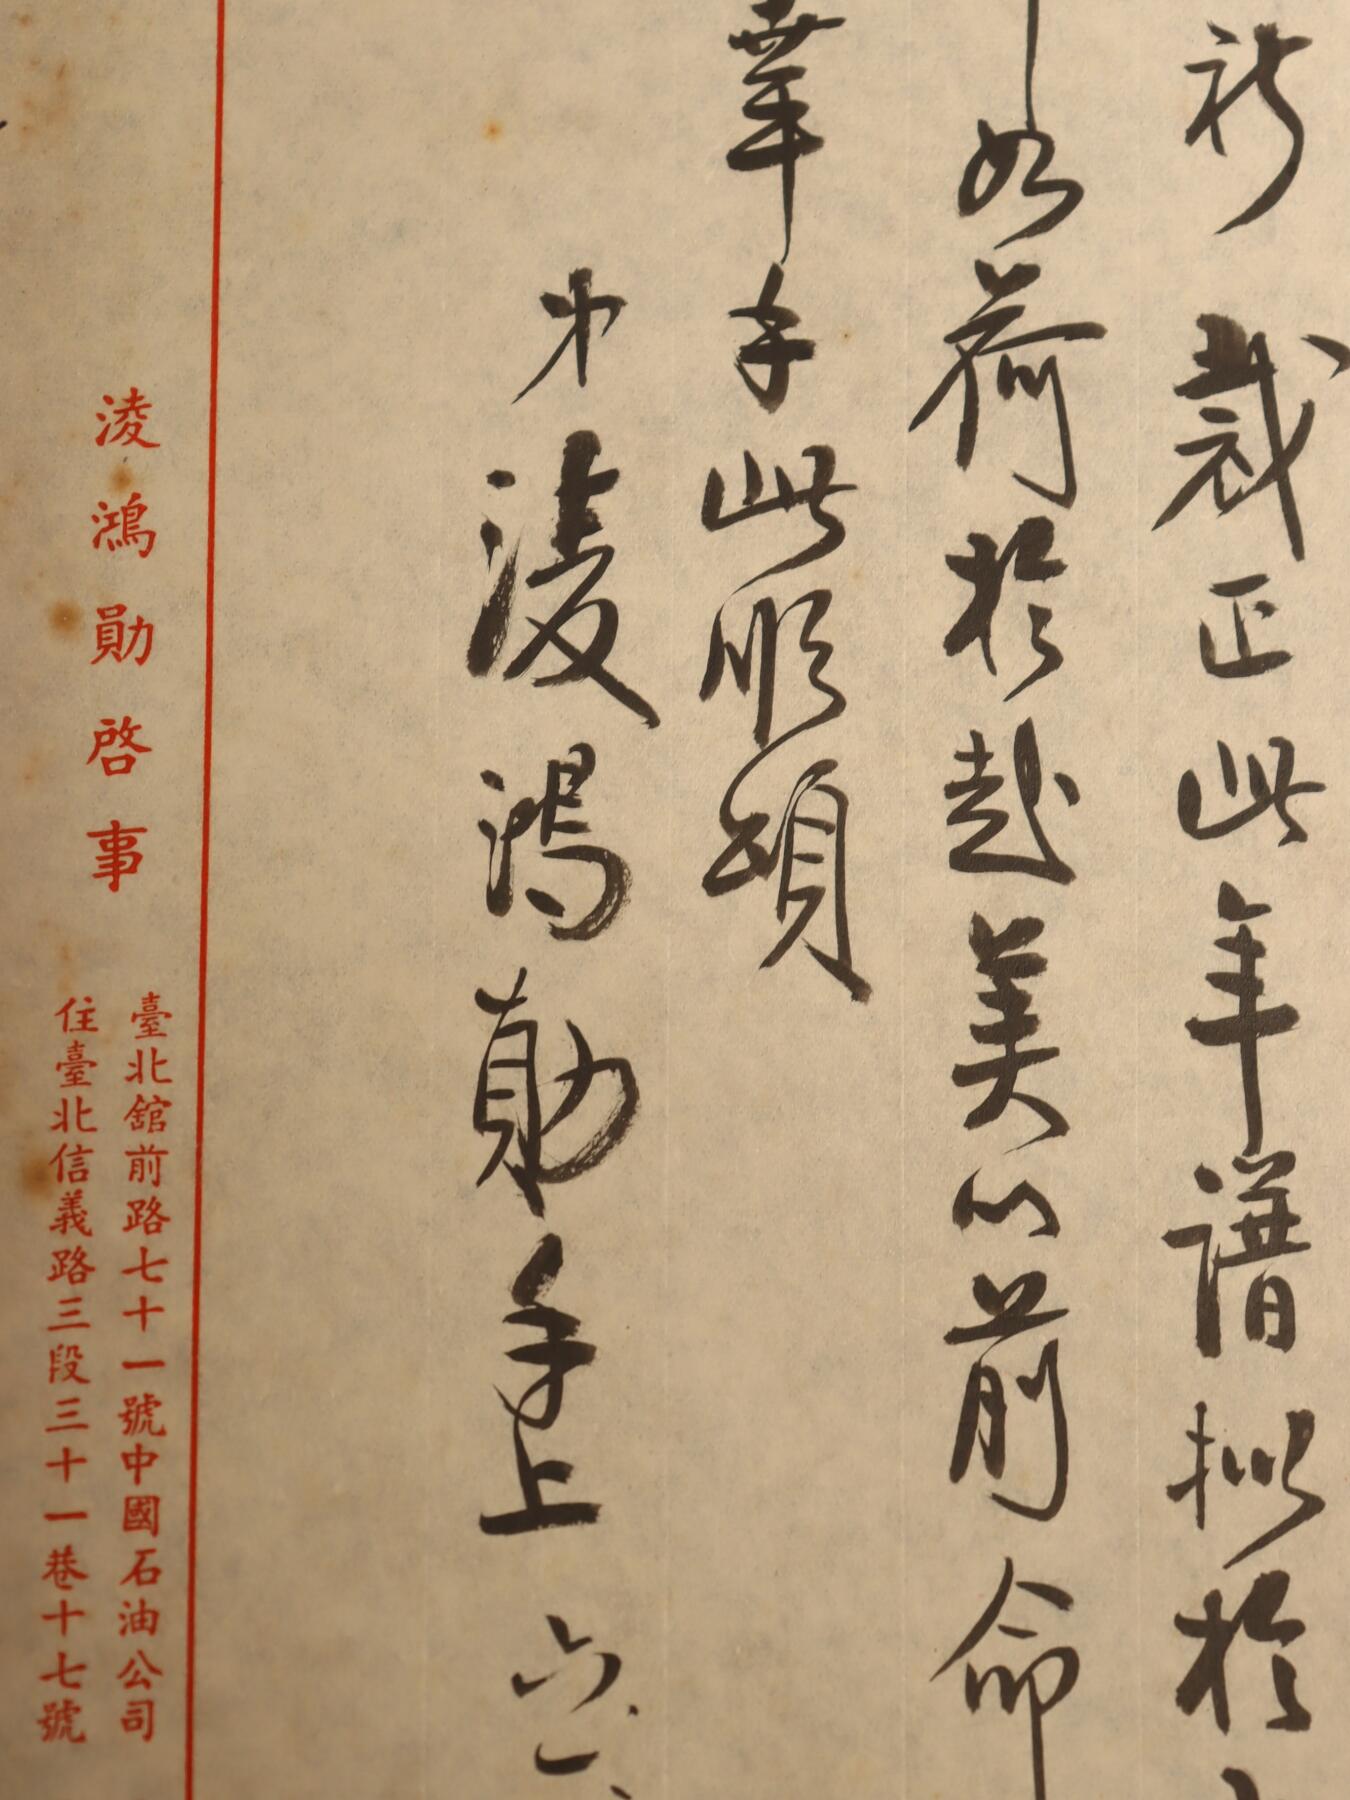 祈 裁正此年譜擬於
如荷於赴美以前命
華手此順頌
弟凌鴻勛手上 六、一、
凌鴻勛啓事
臺北舘前路七十一號中國石油公司
住臺北信義路三段三十一巷十七號